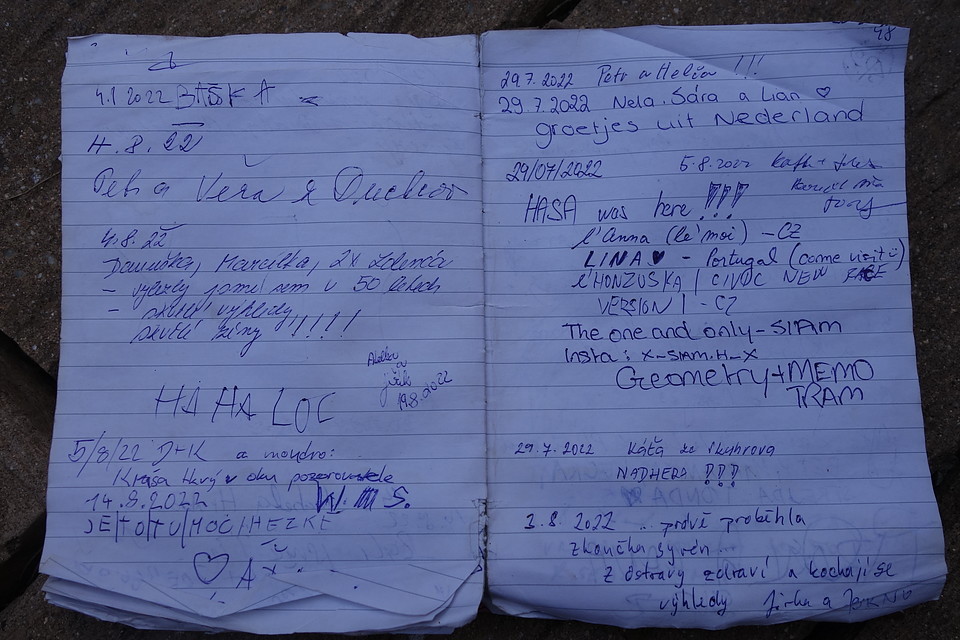 4.1 2022 BAŠKA
4.8.22
Petr a Věra
4.8.22
2x Zdenča
- v 50 letech
- výhledy
ženy !!!!
HA HA LOC
19.8.2022
5/8/22 D+K a moudro:
Krása tkví v oku pozorovatele
14.8.2022 W.M.S.
JE|TO|TU|MOC|HEZKÉ
♡ A
48
29.7.2022 Petr a Helča !!!
29.7.2022 Nela, Sára a Lian ♡
groetjes uit Nederland
29/07/2022 5.8.2022
HASA was here !!!
l'Anna (lé moi) - CZ
LINA♥ - Portugal (come visit ☺)
l'HONZUSKA | CIVIC NEW
VERSION | - CZ
The one and only - SIAM
Insta: x_SIAM.H_X
Geometry+MEMO
TRAM
29.7.2022 Káťa ze Skuhrova
NADHERA !!!
3.8.2022 .. právě proběhla
zkouška syrén..
Z Ostravy zdraví a kochají se
výhledy Jirka a